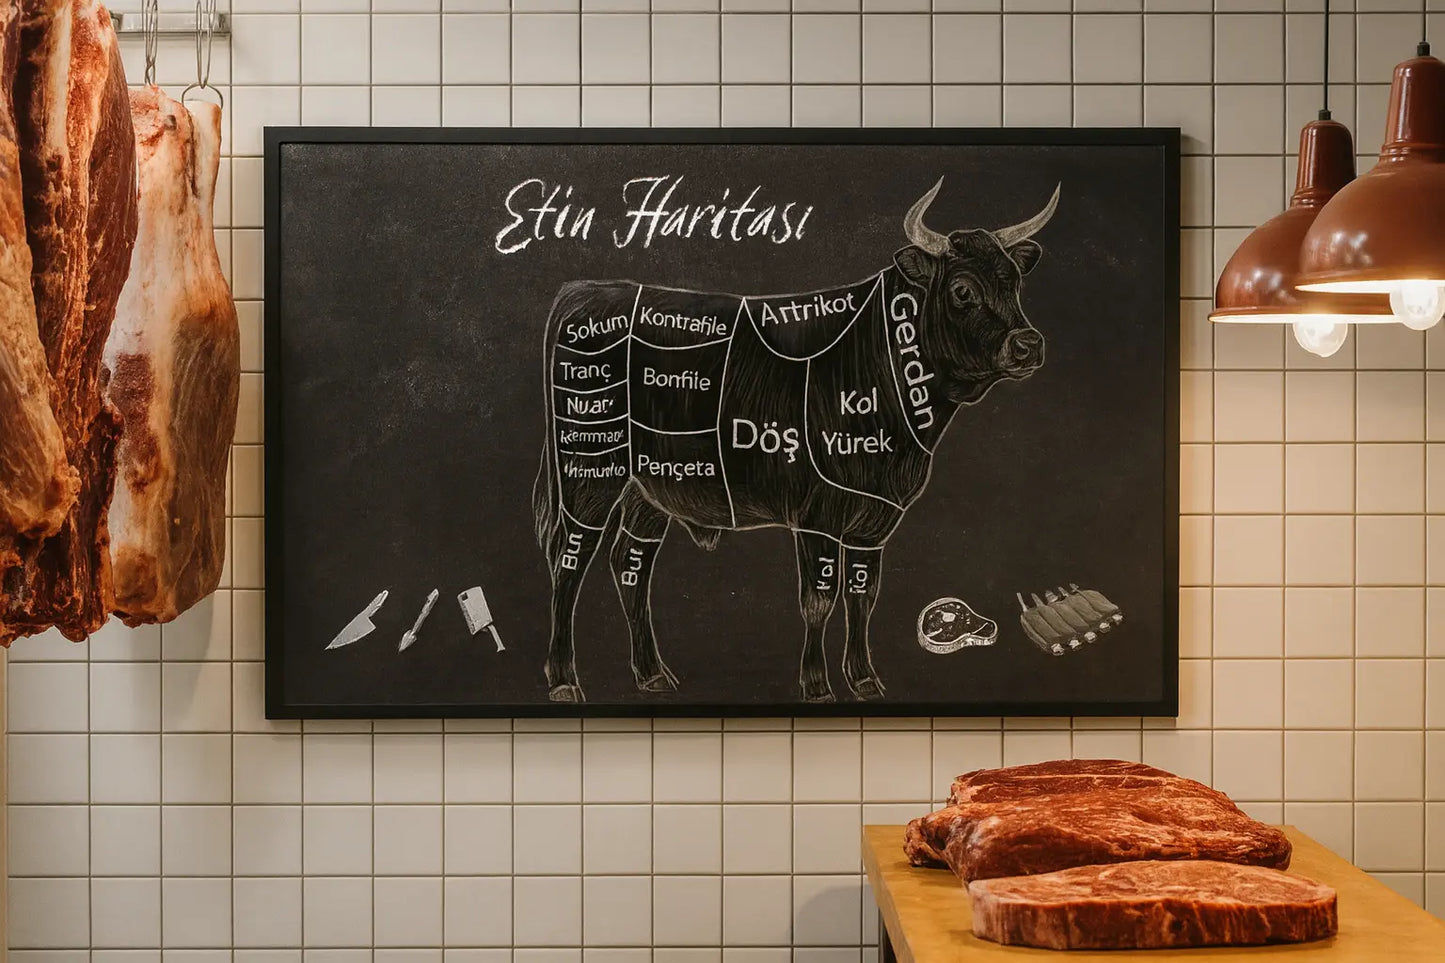 Etin Haritası
Sokum
Kontrafile
Artrikot
Gerdan
Tranç
Bonfile
Nuar
Kol
Yürek
Döş
Pençeta
But
But
Kol
Kol